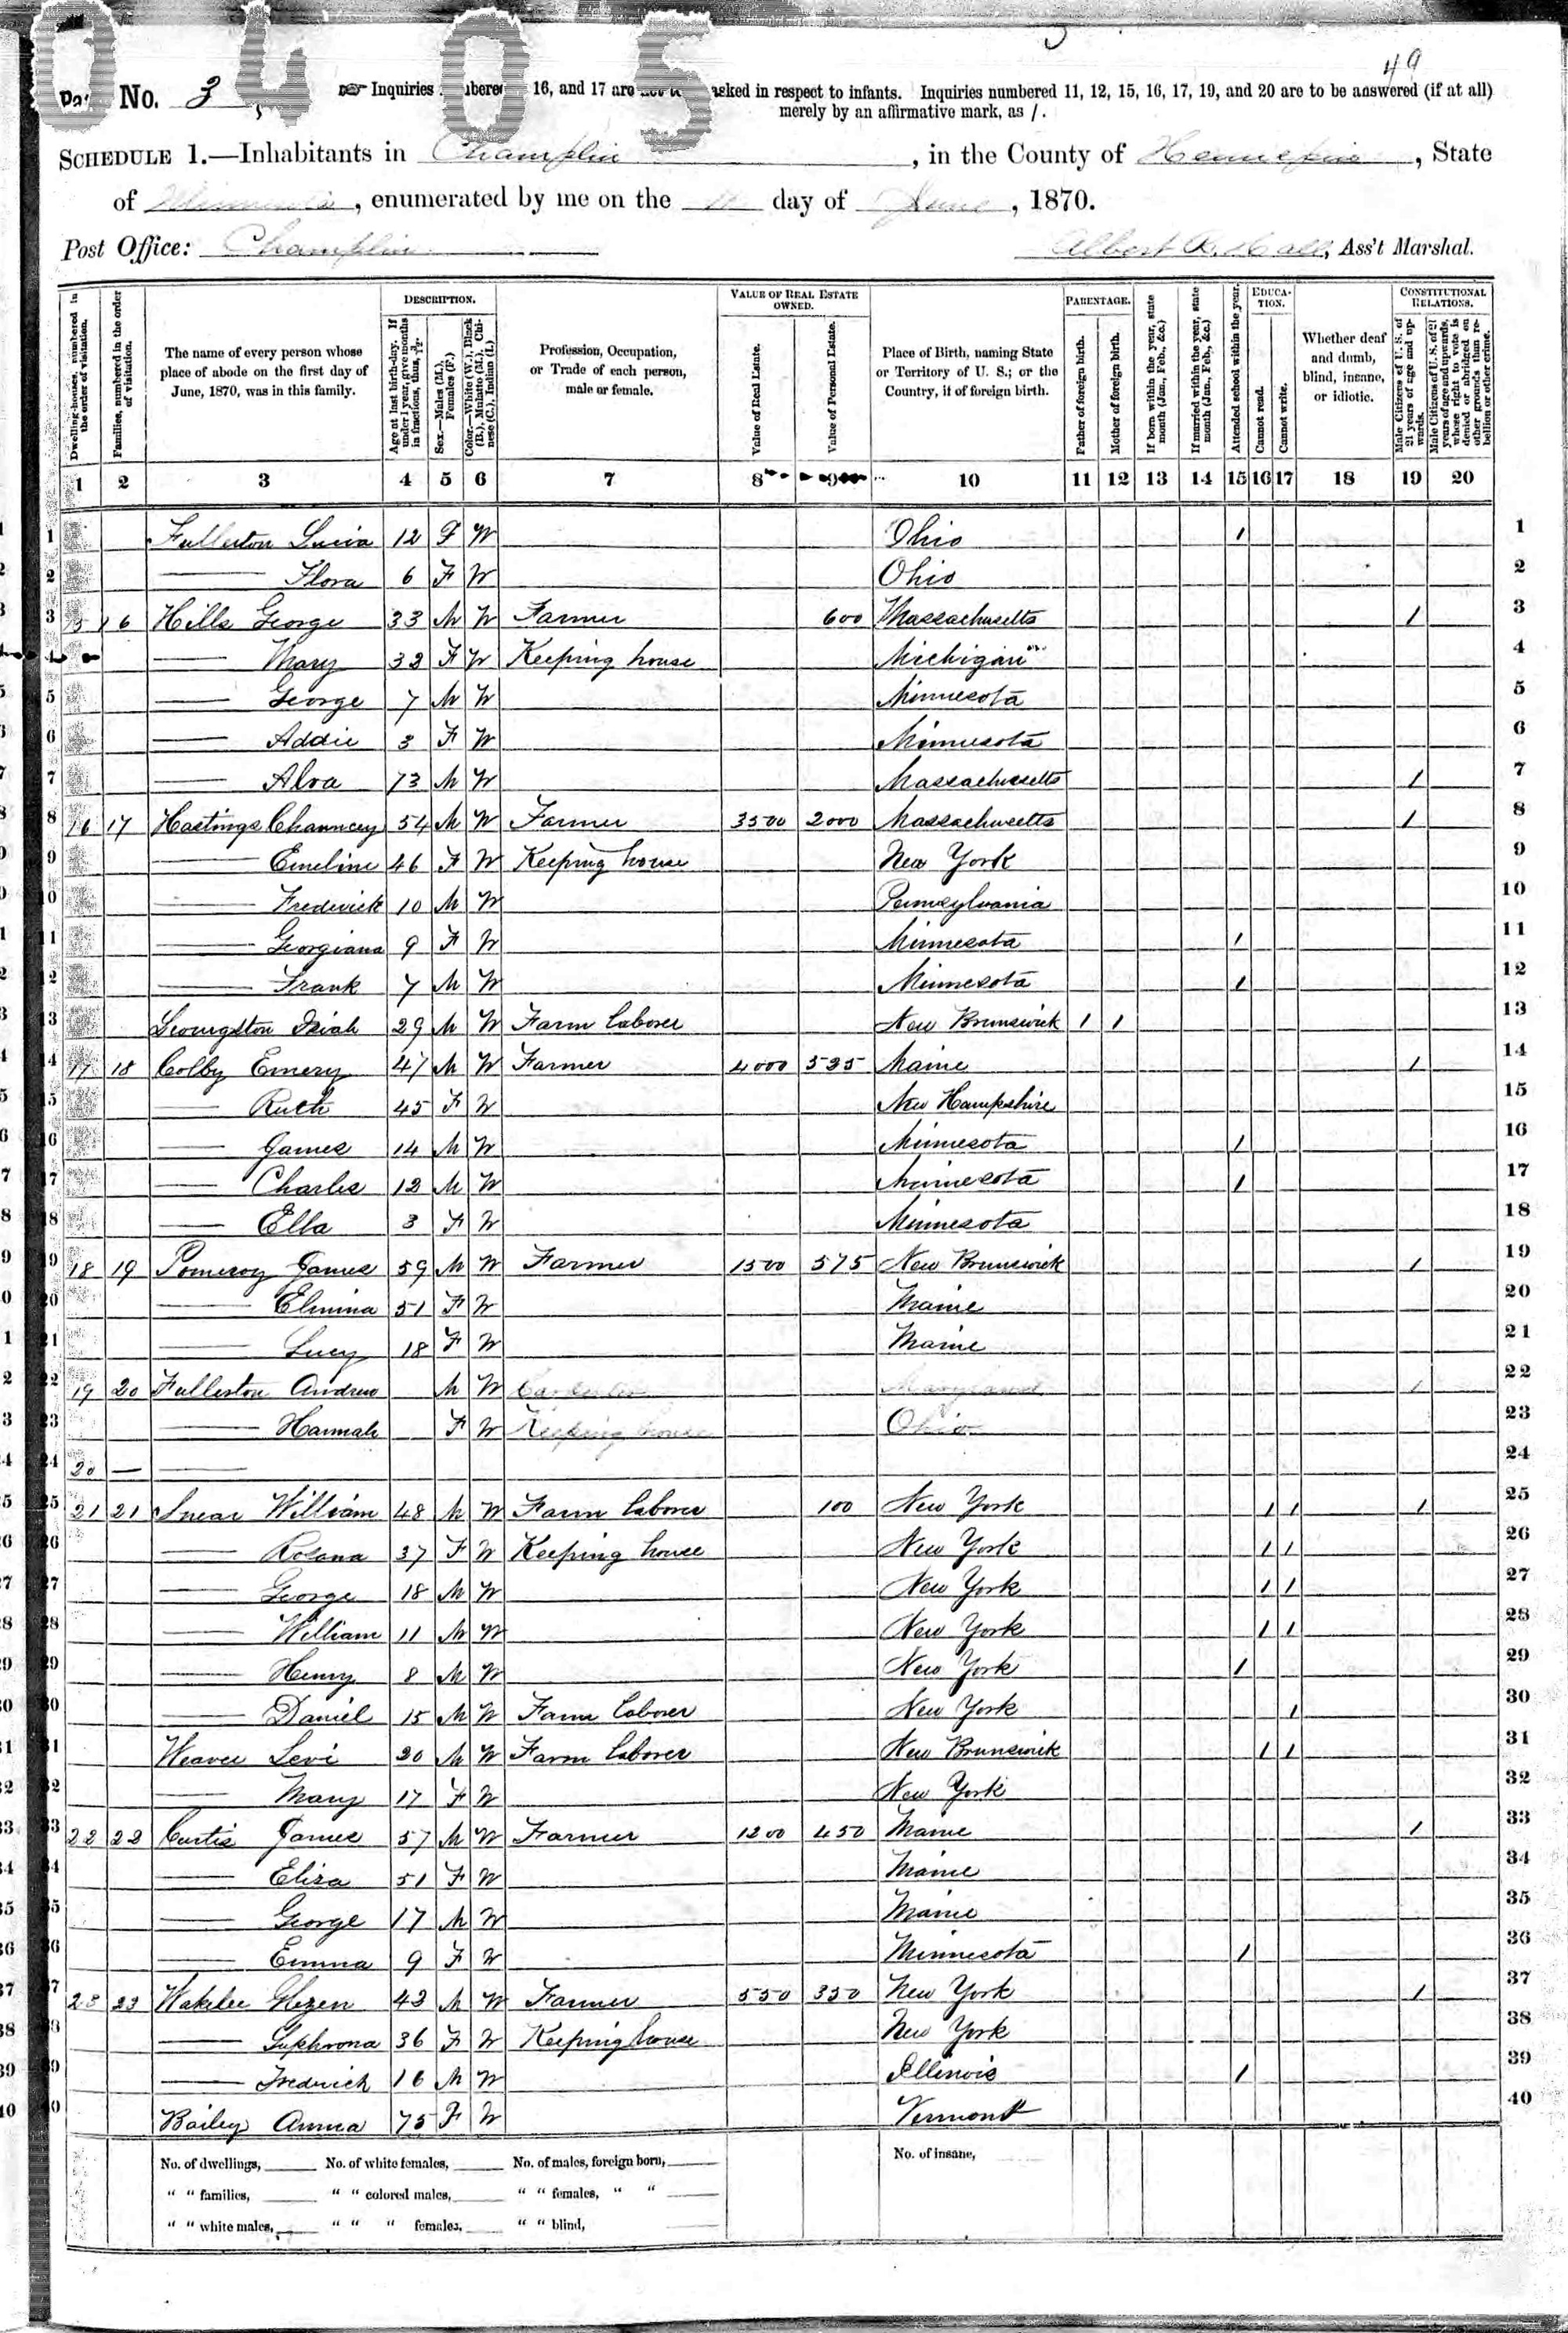 0405
49
No. 3
Inquiries numbered 16, and 17 are not to be asked in respect to infants. Inquiries numbered 11, 12, 15, 16, 17, 19, and 20 are to be answered (if at all)
merely by an affirmative mark, as /.
SCHEDULE 1.—Inhabitants in Champlin, in the County of Hennepin, State
of Minnesota, enumerated by me on the day of June, 1870.
Post Office: Champlin
Albert R. Hall, Ass't Marshal.
Dwelling-houses, numbered in the order of visitation.
Families, numbered in the order of visitation.
The name of every person whose place of abode on the first day of June, 1870, was in this family.
DESCRIPTION.
Age at last birth-day. If under 1 year, give months in fractions, thus, 3/12.
Sex.—Males (M.), Females (F.)
Color.—White (W.), Black (B.), Mulatto (M.), Chinese (C.), Indian (I.)
Profession, Occupation, or Trade of each person, male or female.
VALUE OF REAL ESTATE OWNED.
Value of Real Estate.
Value of Personal Estate.
Place of Birth, naming State or Territory of U. S.; or the Country, if of foreign birth.
PARENTAGE.
Father of foreign birth.
Mother of foreign birth.
If born within the year, state month (Jan., Feb., &c.)
If married within the year, state month (Jan., Feb., &c.)
EDUCATION.
Attended school within the year.
Cannot read.
Cannot write.
Whether deaf and dumb, blind, insane, or idiotic.
CONSTITUTIONAL RELATIONS.
Male Citizens of U. S. of 21 years of age and upwards.
Male Citizens of U. S. of 21 years of age and upwards, whose right to vote is denied or abridged on other grounds than rebellion or other crime.
1 2 3 4 5 6 7 8 9 10 11 12 13 14 15 16 17 18 19 20
1 Fullerton Lucia 12 F W Ohio / 1
2 —— Flora 6 F W Ohio 2
3 15 16 Hills George 33 M W Farmer 600 Massachusetts / 3
4 —— Mary 33 F W Keeping house Michigan 4
5 —— George 7 M W Minnesota 5
6 —— Addie 3 F W Minnesota 6
7 —— Alva 73 M W Massachusetts / 7
8 16 17 Hastings Chauncey 54 M W Farmer 3500 2000 Massachusetts / 8
9 —— Emeline 46 F W Keeping house New York 9
10 —— Frederick 10 M W Pennsylvania 10
11 —— Georgiana 9 F W Minnesota / 11
12 —— Frank 7 M W Minnesota / 12
13 29 M W Farm laborer New Brunswick / / 13
14 17 18 Colby Emery 47 M W Farmer 4000 535 Maine / 14
15 —— Ruth 45 F W New Hampshire 15
16 —— James 14 M W Minnesota / 16
17 —— Charles 12 M W Minnesota / 17
18 —— Ella 3 F W Minnesota 18
19 18 19 Pomeroy James 59 M W Farmer 1500 575 New Brunswick / 19
20 —— Elmina 51 F W Maine 20
21 —— Lucy 18 F W Maine 21
22 19 20 Fullerton Andrew M W Carpenter Maryland / 22
23 —— Hannah F W Keeping house Ohio 23
24 20 — —— 24
25 21 21 William 48 M W Farm laborer 100 New York / / / 25
26 —— Rosana 37 F W Keeping house New York / / 26
27 —— George 18 M W New York / / 27
28 —— William 11 M W New York / / 28
29 —— Henry 8 M W New York / 29
30 —— Daniel 15 M W Farm laborer New York / 30
31 Weaver Levi 20 M W Farm laborer New Brunswick / / 31
32 —— Mary 17 F W New York 32
33 22 22 Curtis James 57 M W Farmer 1200 450 Maine / 33
34 —— Eliza 51 F W Maine 34
35 —— George 17 M W Maine 35
36 —— Emma 9 F W Minnesota / 36
37 23 23 Wakelee 43 M W Farmer 550 350 New York / 37
38 —— 36 F W Keeping house New York 38
39 —— Fredrick 16 M W Illinois / 39
40 Bailey Anna 75 F W Vermont 40
No. of dwellings, No. of white females, No. of males, foreign born, No. of insane,
" " families, " " colored males, " " females, " "
" " white males, " " " females, " " blind,